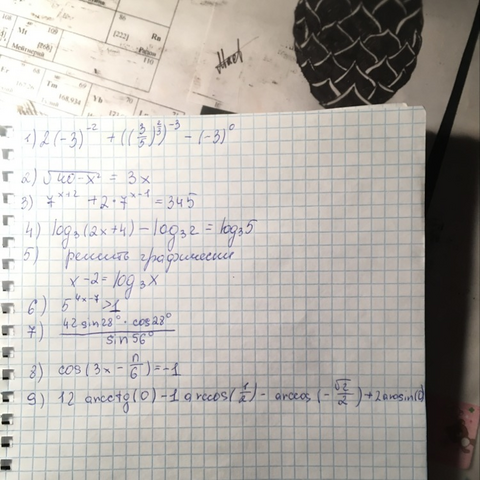 Mt 109 [268] Мейтнерий
86 [222] Rn Радон 110
Tm 168,934
Yb 70
1) 2(-3)⁻² + ((3/5)^(2/3))⁻³ - (-3)⁰
2) √(40-x²) = 3x
3) 7^(x+2) + 2·7^(x-1) = 345
4) log₃(2x+4) - log₃2 = log₃5
5) решить графически
x-2 = log₃x
6) 5^(4x-7) > 1
7) (42 sin28°·cos28°)/(sin56°)
8) cos(3x - π/6) = -1
9) 12 arcctg(0) - 1 arccos(1/2) - arccos(-√2/2) + 2arcsin(0)